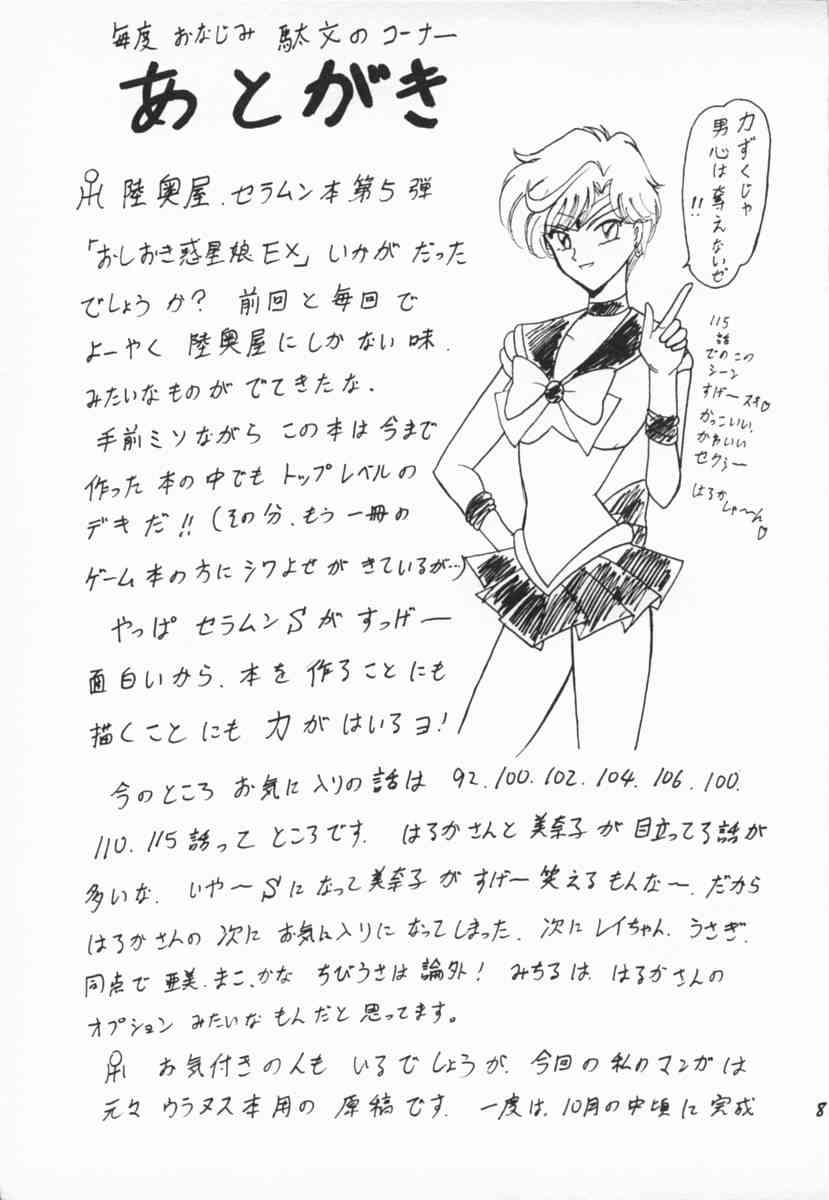 毎度 おなじみ 駄文のコーナー
あとがき
陸奥屋、セラムン本第5弾
「おしおき惑星娘EX」いかが だった
でしょうか? 前回と毎回で
よーやく 陸奥屋にしかない味、
みたいなものがでてきたな、
手前ミソながら この本は今まで
作った本の中でも トップレベルの
デキだ!!(その分、もう一冊の
ゲーム本の方にシワよせが きているが…)
やっぱ セラムンSが すっげー
面白いから、本を作ることにも
描くことにも 力がはいるヨ!
今のところ お気に入りの話は 92.100.102.104.106.100.
110.115話って ところです. はるかさんと 美奈子が 目立ってる話が
多いな. いや〜Sになって美奈子が すげー 笑えるもんな〜. だから
はるかさんの 次に お気に入りに なってしまった. 次に レイちゃん、うさぎ.
同点で 亜美、まこ、かな ちびうさは 論外! みちるは、はるかさんの
オプション みたいなもんだと 思ってます。
お気付きの人も いるでしょうが、今回の私のマンガは
元々 ウラヌス本用の 原稿です. 一度は、10月の中頃に完成
力ずくじゃ
男心は奪えないぜ
!!
115
話
でのこの
シーン
すげースキ♡
かっこいい、
かわいい
セクシー
はるか
しゃ〜ん♡
8